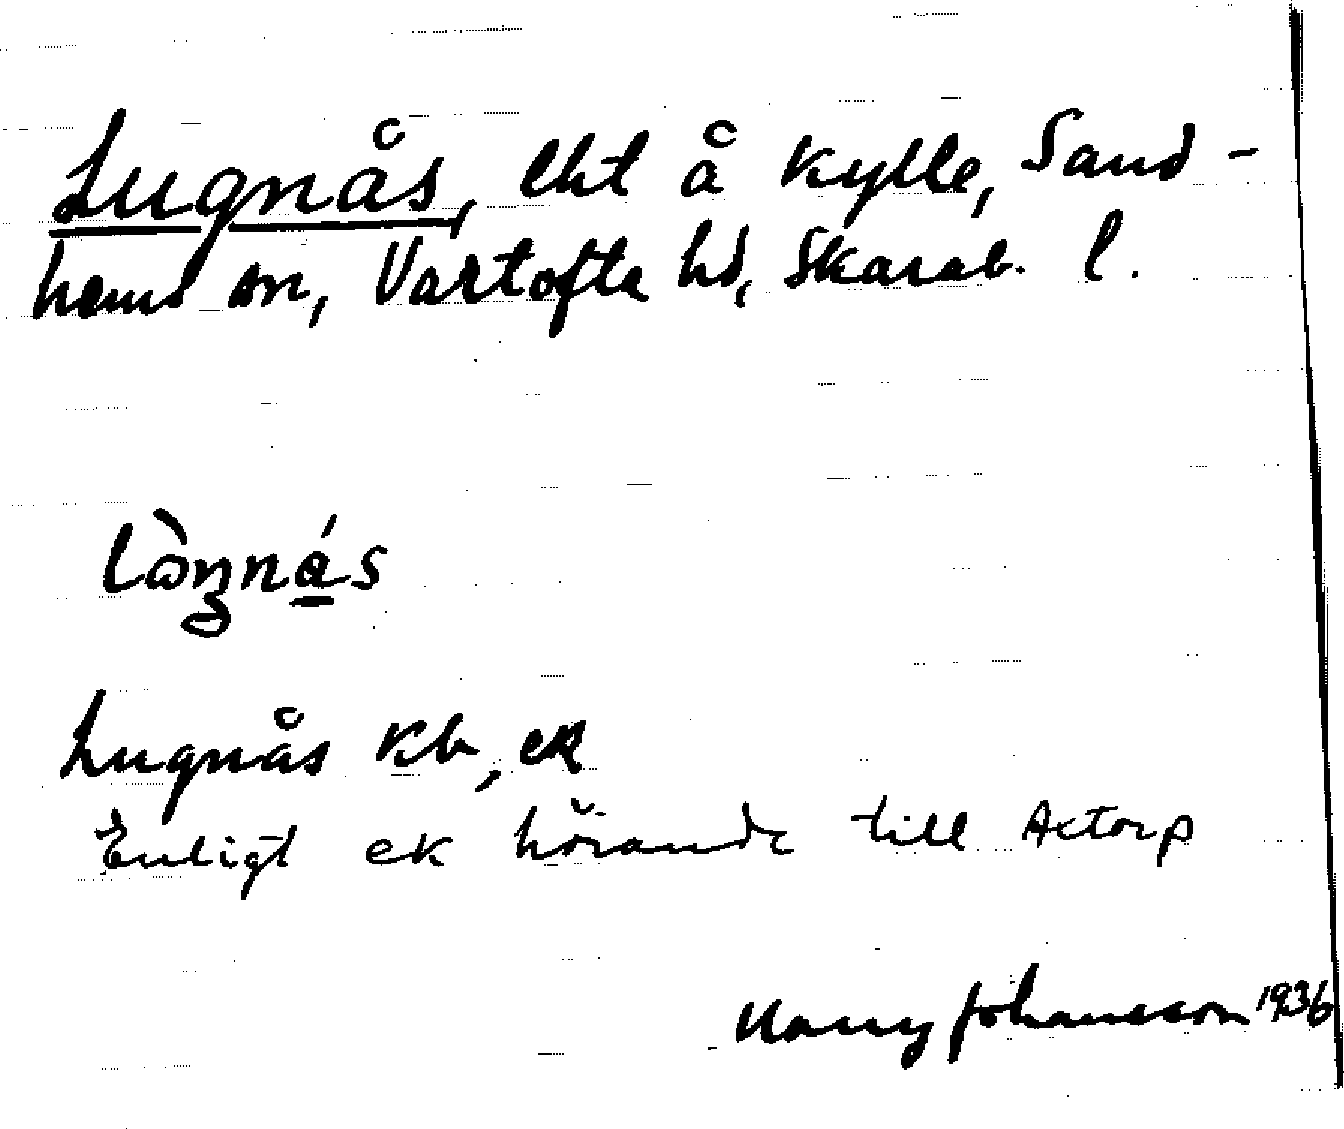 Lugnås, lht å Kylle, Sand-
hems sn, Vartofte hd, Skarab. l.
Lugnås kb, ek
Enligt ek hörande till Actorp
Harry Johansson 1936